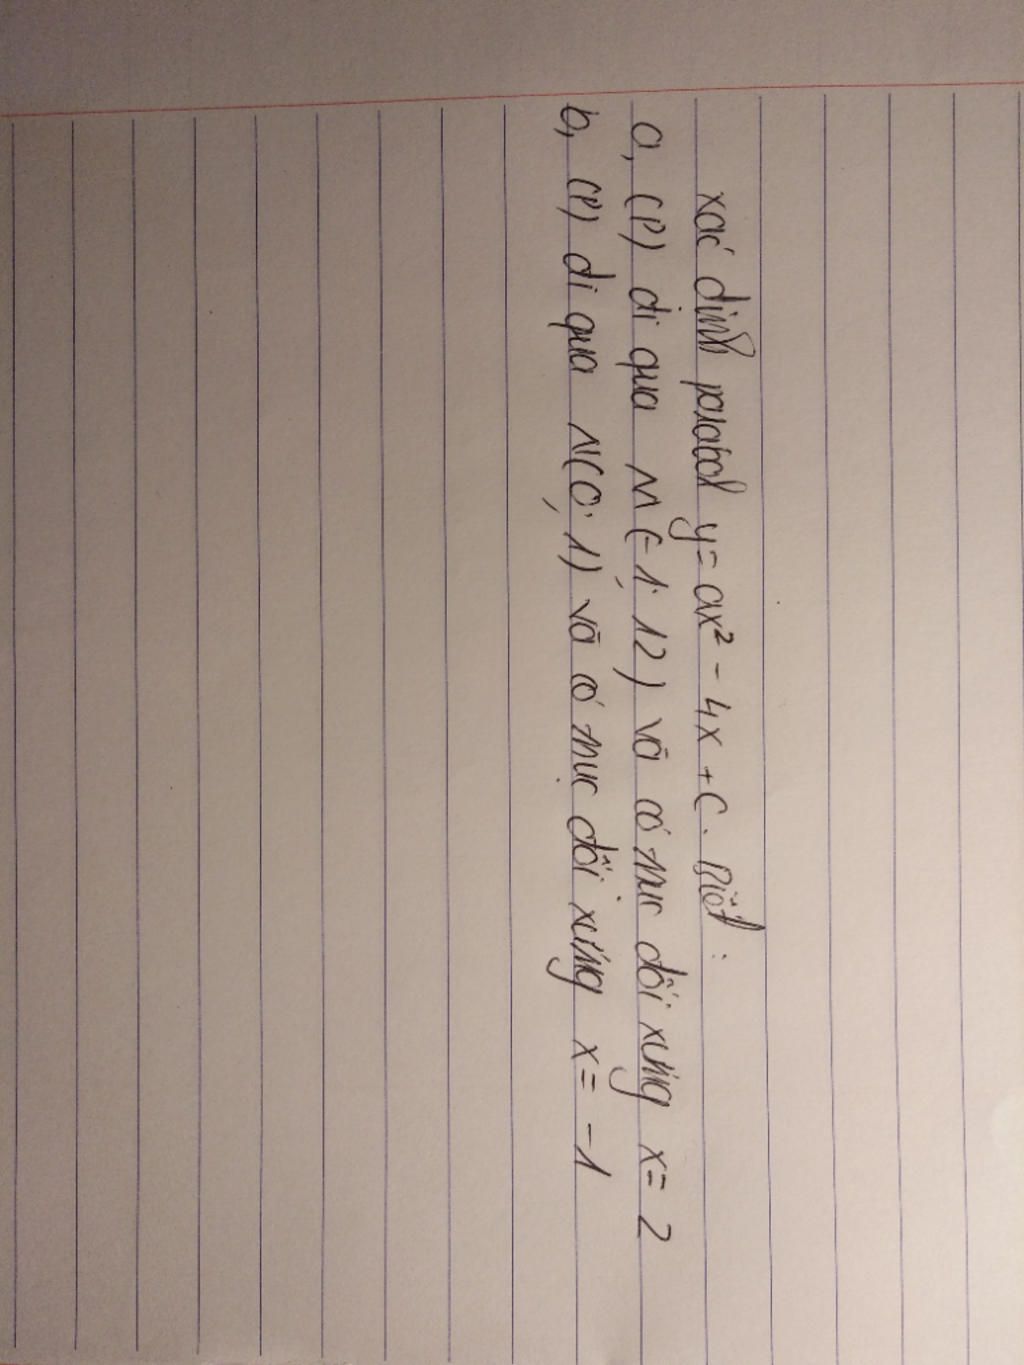 xác định parabol y = ax² - 4x + c. Biết :
a, (P) đi qua M(-1; 12) và có trục đối xứng x = 2
b, (P) đi qua N(0; 1) và có trục đối xứng x = -1